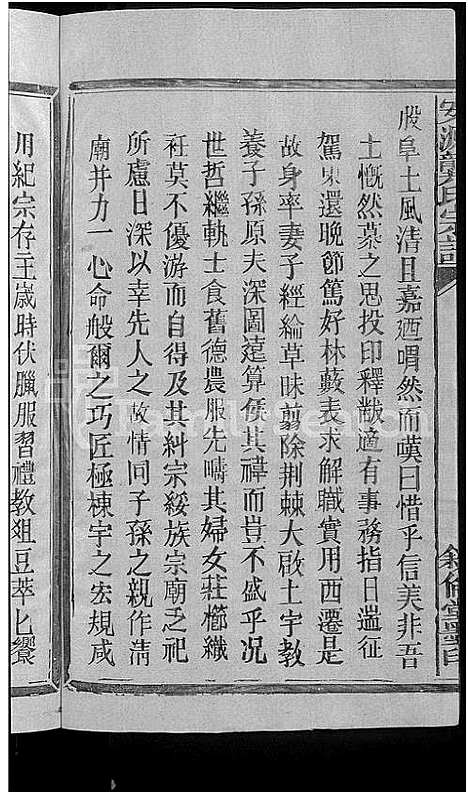 殷阜土風清且嘉迺喟然而嘆曰惜乎信美非吾
土慨然慕之思投印釋黻適有事務指日遄征
駕東還晚節篤好林藪表求解職實用西遷是
故身率妻子經綸草昧翦除荆棘大啟土宇教
養子孫原夫深圖遠算俟其禕而豈不盛乎況
世哲繼軌士食舊德農服先疇其婦女莊櫛織
衽莫不優游而自得及其糾宗綏族宗廟乏祀
所慮日深以幸先人之故情同子孫之親作淸
廟并力一心命般爾之巧匠極棟宇之宏規咸
用紀宗存主歲時伏臘服習禮教俎豆萃匕饗